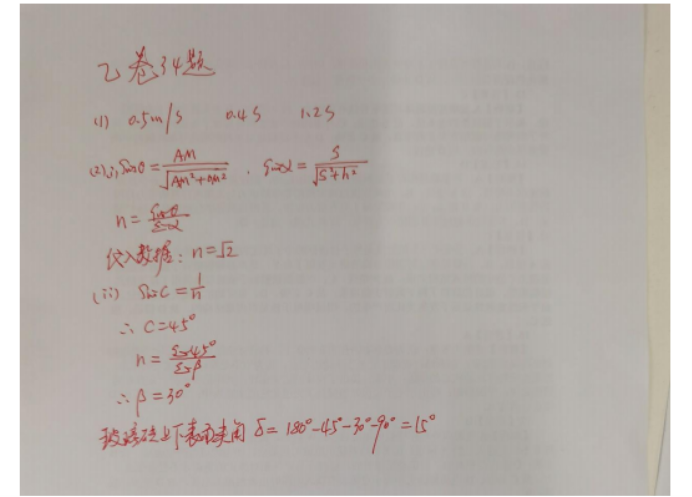 乙卷34题
(1) 0.5m/s 0.4S 1.2S
(2)(i) Sinθ = AM/√(AM²+AM²) , Sinα = S/√(S²+h²)
n = Sinθ/Sinα
代入数据: n=√2
(ii) SinC = 1/n
∴ C=45°
n = Sin45°/Sinβ
∴ β=30°
玻璃砖上下表面夹角 δ= 180°-45°-30°-90° = 15°